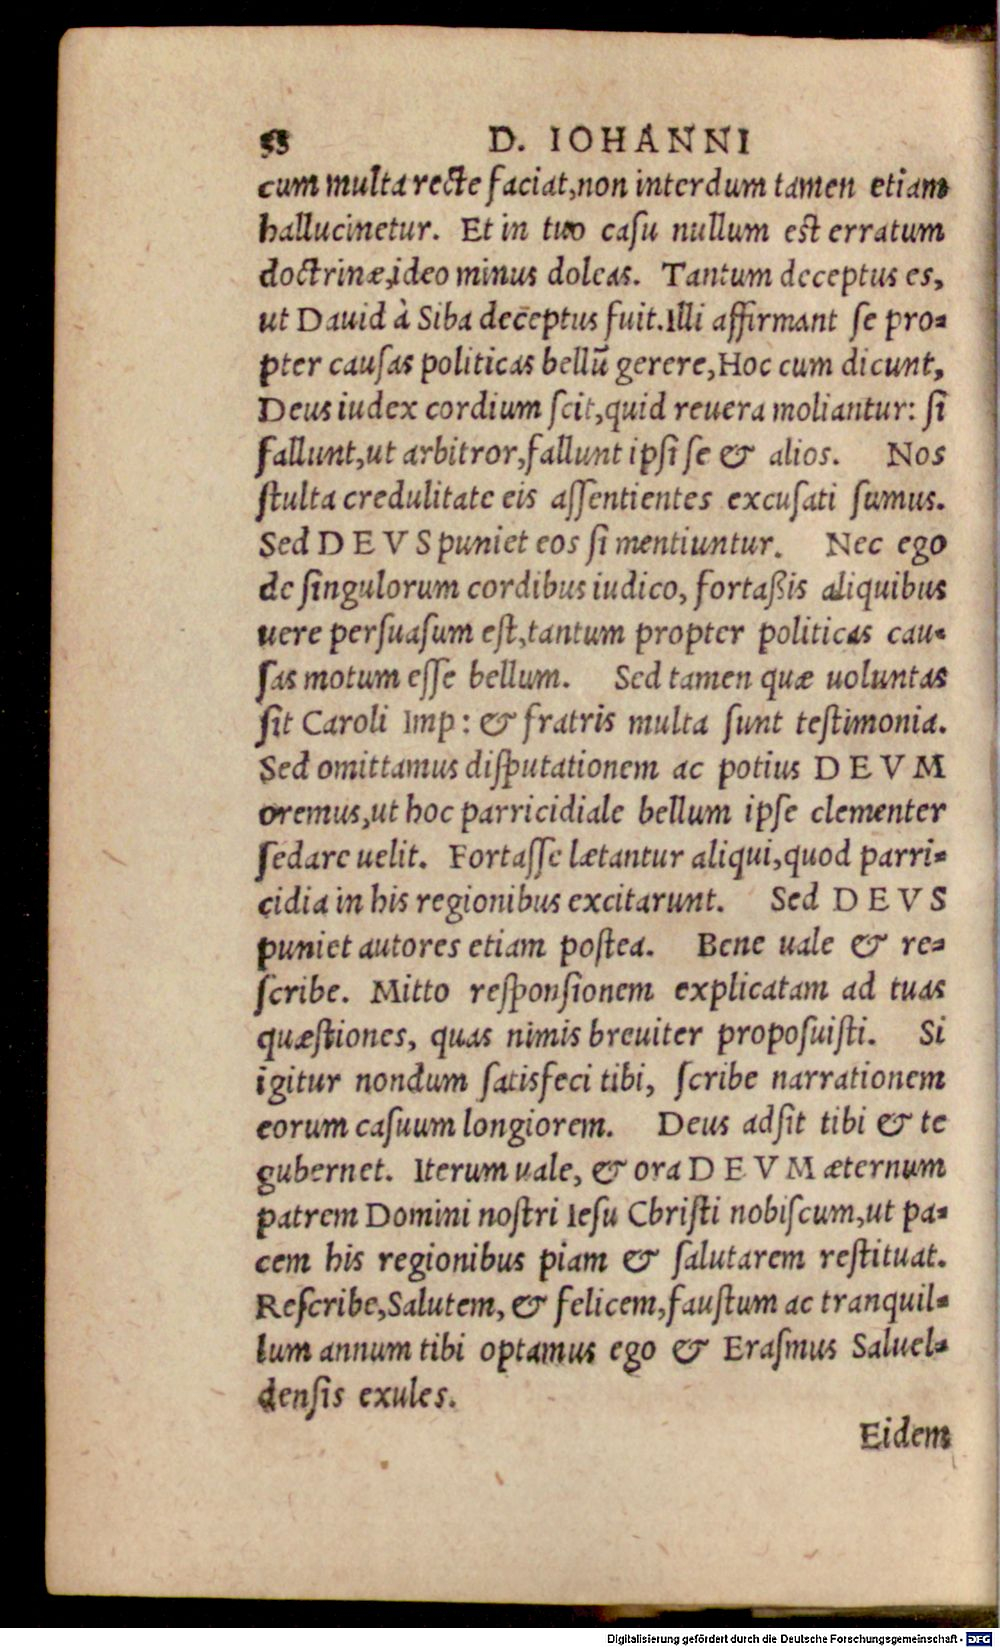 58 D. IOHANNI
cum multa recte faciat, non interdum tamen etiam
hallucinetur. Et in tuo casu nullum est erratum
doctrinæ, ideo minus doleas. Tantum deceptus es,
ut Dauid à Siba deceptus fuit. Illi affirmant se pro-
pter causas politicas bellū gerere, Hoc cum dicunt,
Deus iudex cordium scit, quid reuera moliantur: si
fallunt, ut arbitror, fallunt ipsi se & alios. Nos
stulta credulitate eis assentientes excusati sumus.
Sed DEVS puniet eos si mentiuntur. Nec ego
de singulorum cordibus iudico, fortaßis aliquibus
uere persuasum est, tantum propter politicas cau-
sas motum esse bellum. Sed tamen quæ uoluntas
sit Caroli Imp: & fratris multa sunt testimonia.
Sed omittamus disputationem ac potius DEVM
oremus, ut hoc parricidiale bellum ipse clementer
sedare uelit. Fortasse lætantur aliqui, quod parri-
cidia in his regionibus excitarunt. Sed DEVS
puniet autores etiam postea. Bene uale & re-
scribe. Mitto responsionem explicatam ad tuas
quæstiones, quas nimis breuiter proposuisti. Si
igitur nondum satisfeci tibi, scribe narrationem
eorum casuum longiorem. Deus adsit tibi & te
gubernet. Iterum uale, & ora DEVM æternum
patrem Domini nostri Iesu Christi nobiscum, ut pa-
cem his regionibus piam & salutarem restituat.
Rescribe, Salutem, & felicem, faustum ac tranquil-
lum annum tibi optamus ego & Erasmus Saluel-
densis exules.
Eidem
Digitalisierung gefördert durch die Deutsche Forschungsgemeinschaft - DFG